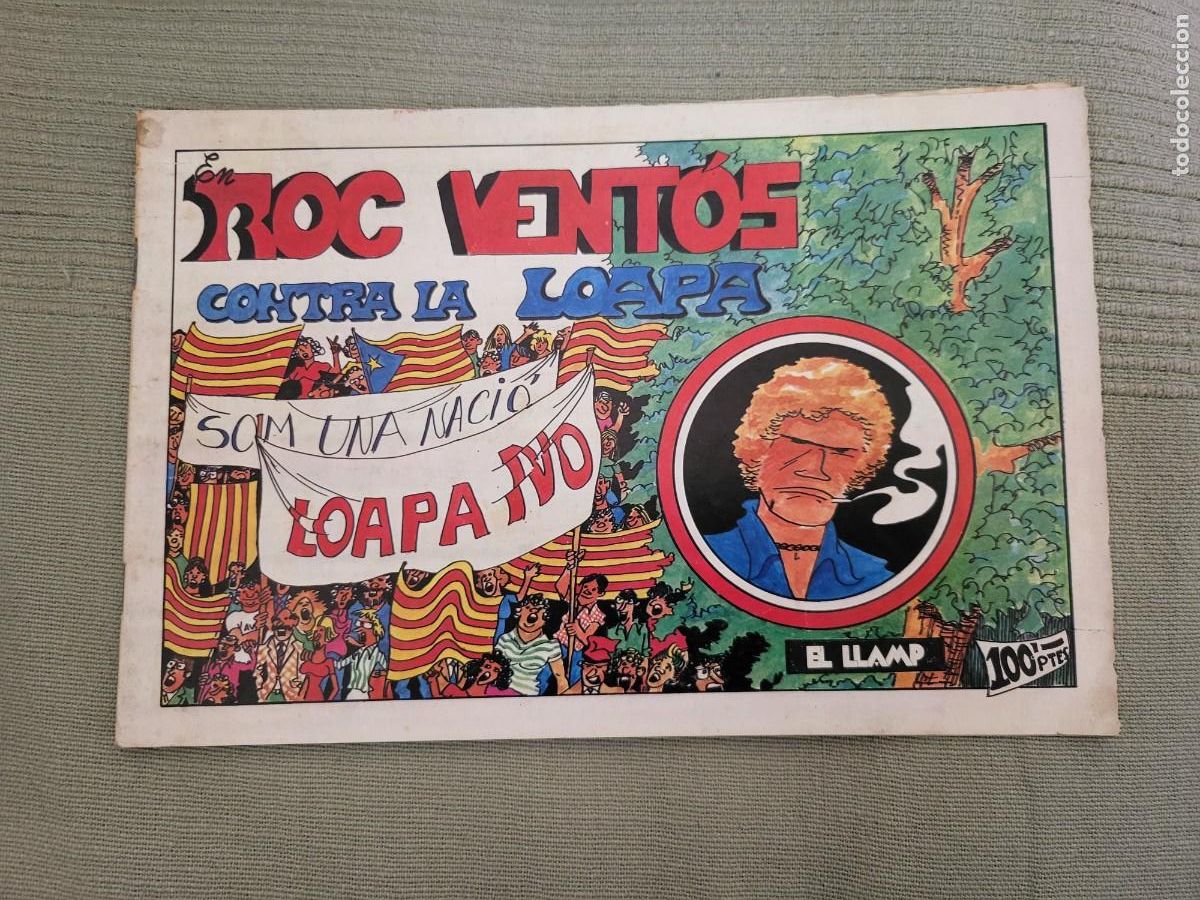 En
ROC VENTÓS
CONTRA LA LOAPA
SOM UNA NACIÓ
LOAPA NO
EL LLAMP
100'- PTES
todocoleccion